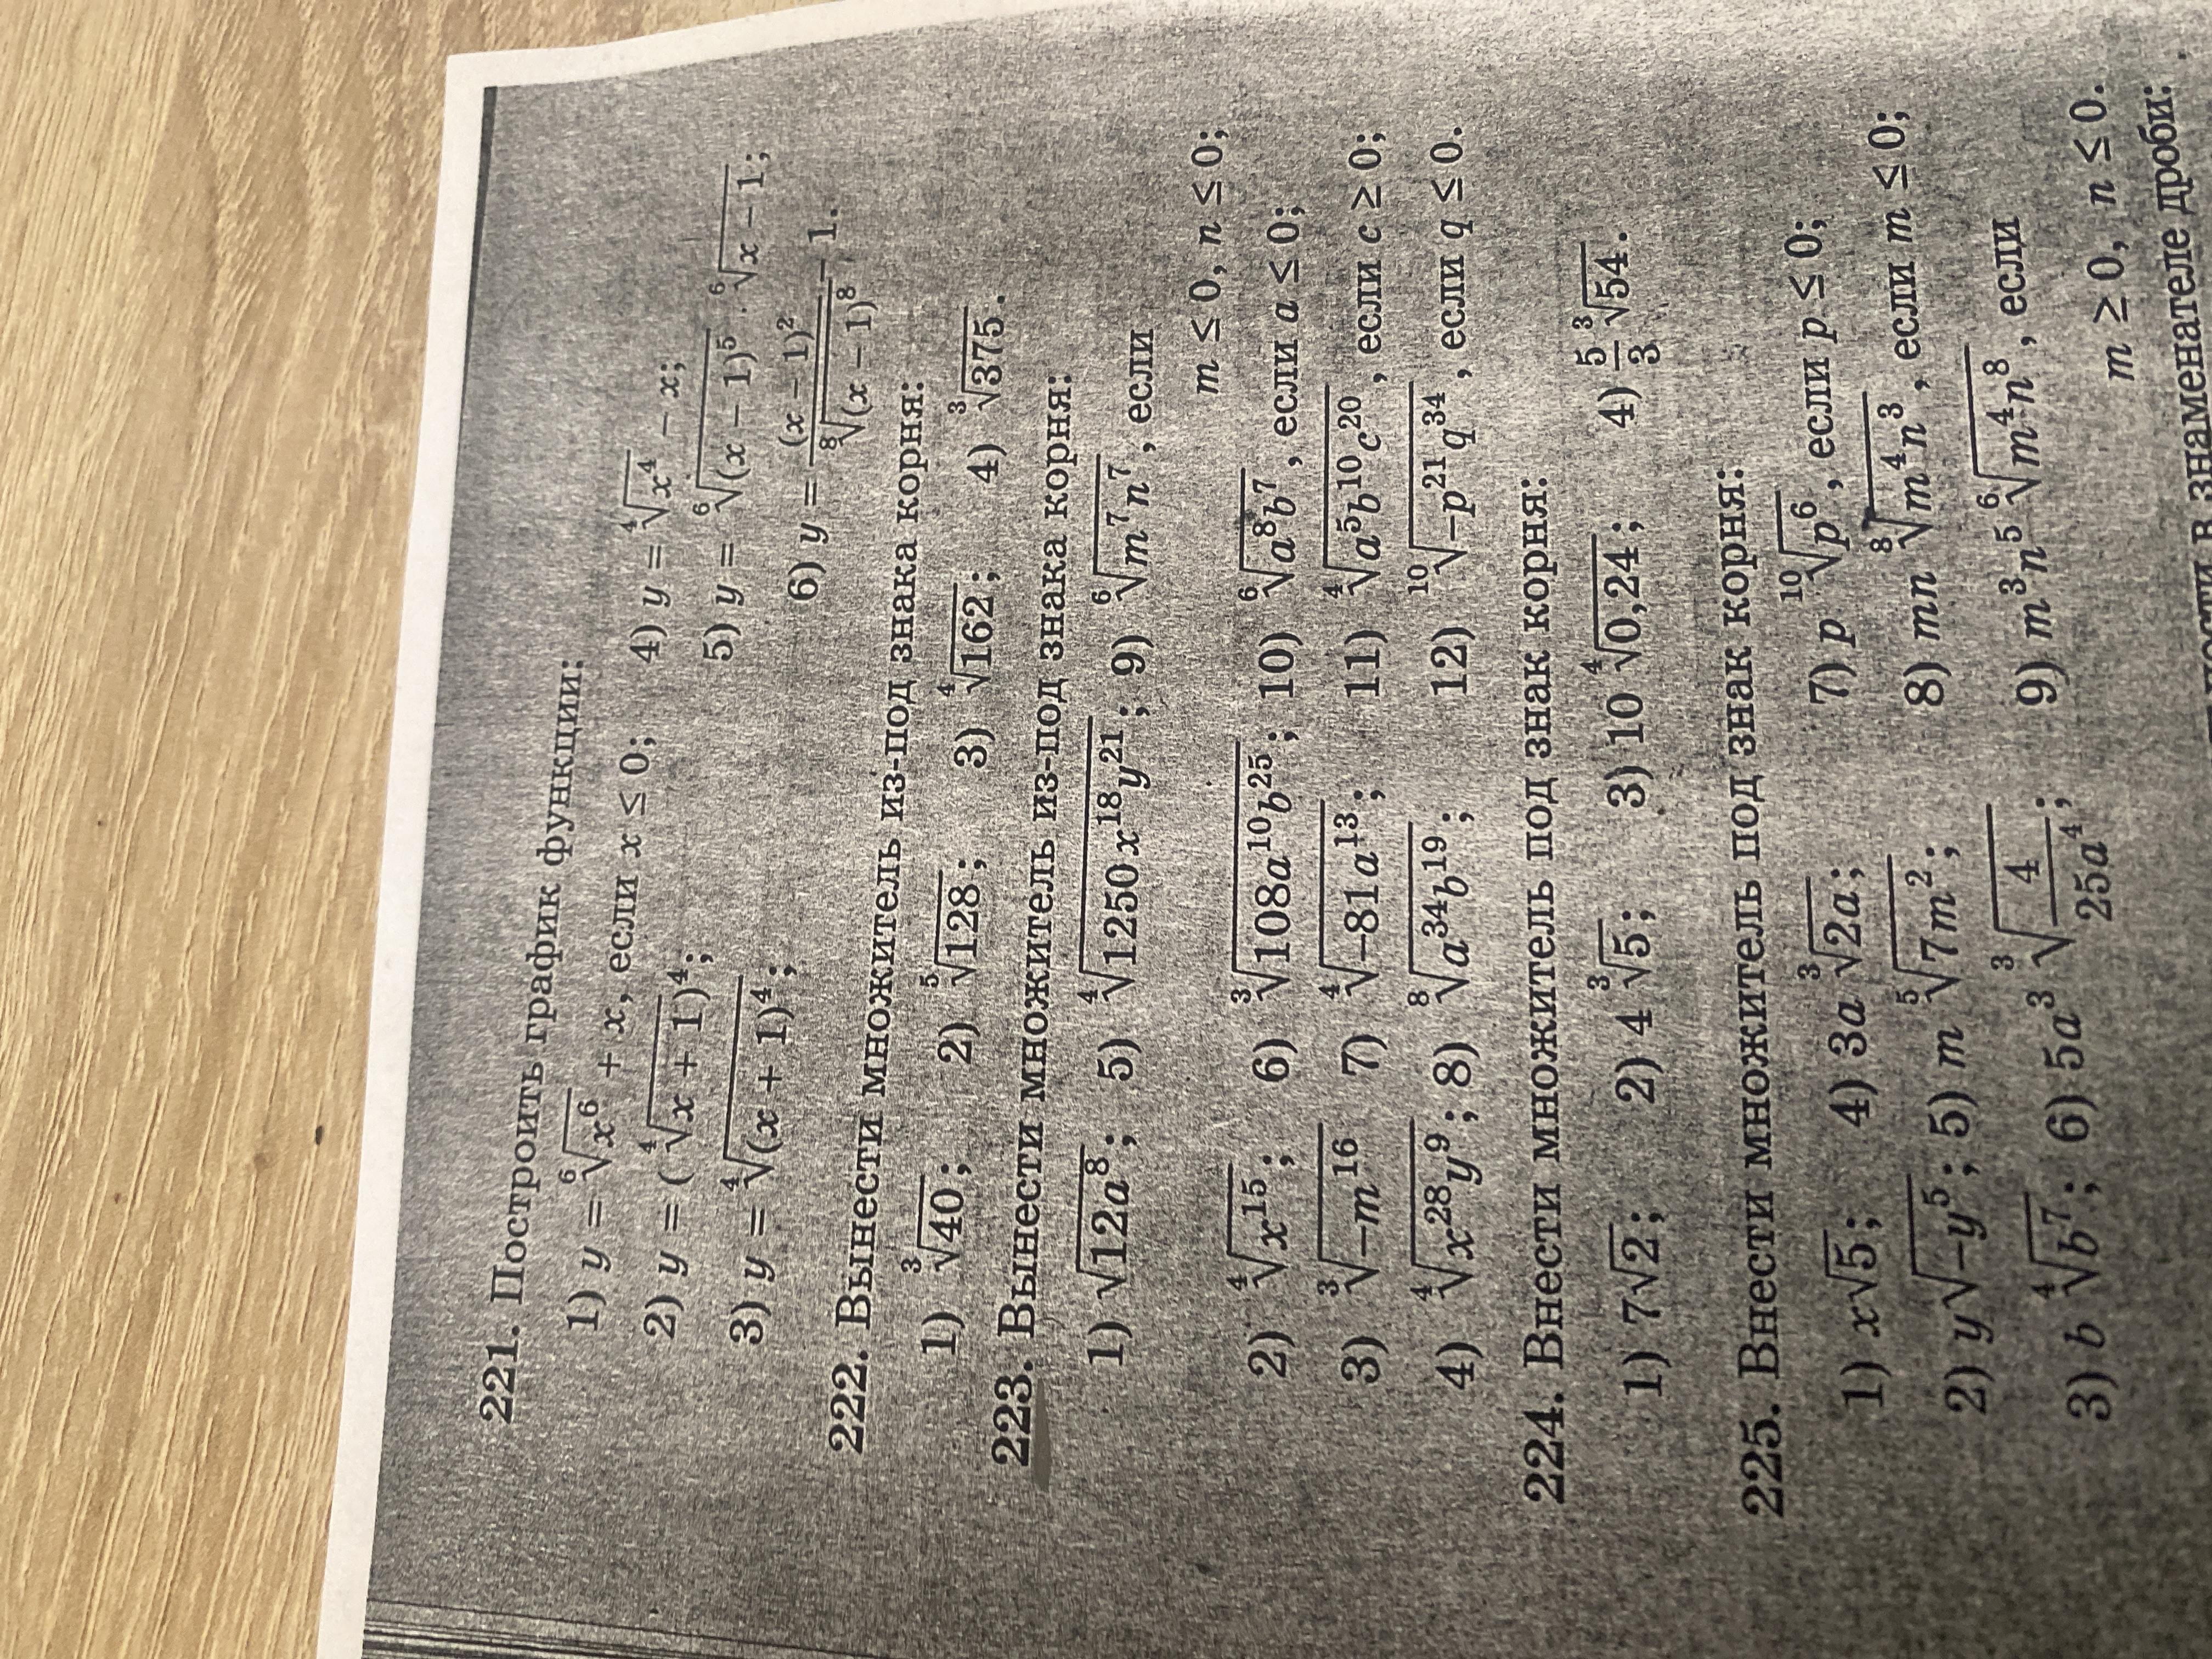 221. Построить график функции:
1) y = ⁶√(x⁶) + x, если x ≤ 0; 4) y = ⁴√(x⁴) − x;
2) y = (⁴√(x + 1))⁴; 5) y = ⁶√((x − 1)⁵) · ⁶√(x − 1);
3) y = ⁴√((x + 1)⁴); 6) y = (x − 1)²/⁸√((x − 1)⁸) − 1.
222. Вынести множитель из-под знака корня:
1) ³√40; 2) ⁵√128; 3) ⁴√162; 4) ³√375.
223. Вынести множитель из-под знака корня:
1) √(12a⁸); 5) ⁴√(1250x¹⁸y²¹); 9) ⁶√(m⁷n⁷), если
m ≤ 0, n ≤ 0;
2) ⁴√(x¹⁵); 6) ³√(108a¹⁰b²⁵); 10) ⁶√(a⁸b⁷), если a ≤ 0;
3) ³√(−m¹⁶) 7) ⁴√(−81a¹³); 11) ⁴√(a⁵b¹⁰c²⁰), если c ≥ 0;
4) ⁴√(x²⁸y⁹); 8) ⁸√(a³⁴b¹⁹); 12) ¹⁰√(−p²¹q³⁴), если q ≤ 0.
224. Внести множитель под знак корня:
1) 7√2; 2) 4 ³√5; 3) 10 ⁴√0,24; 4) 5/3 ³√54.
225. Внести множитель под знак корня:
1) x√5; 4) 3a ³√(2a); 7) p ¹⁰√(p⁶), если p ≤ 0;
2) y√(−y⁵); 5) m ⁵√(7m²); 8) mn ⁸√(m⁴n³), если m ≤ 0;
3) b ⁴√(b⁷); 6) 5a³ ³√(4/25a⁴); 9) m³n⁵ ⁶√(m⁴n⁸), если
m ≥ 0, n ≤ 0.
в знаменателе дроби: